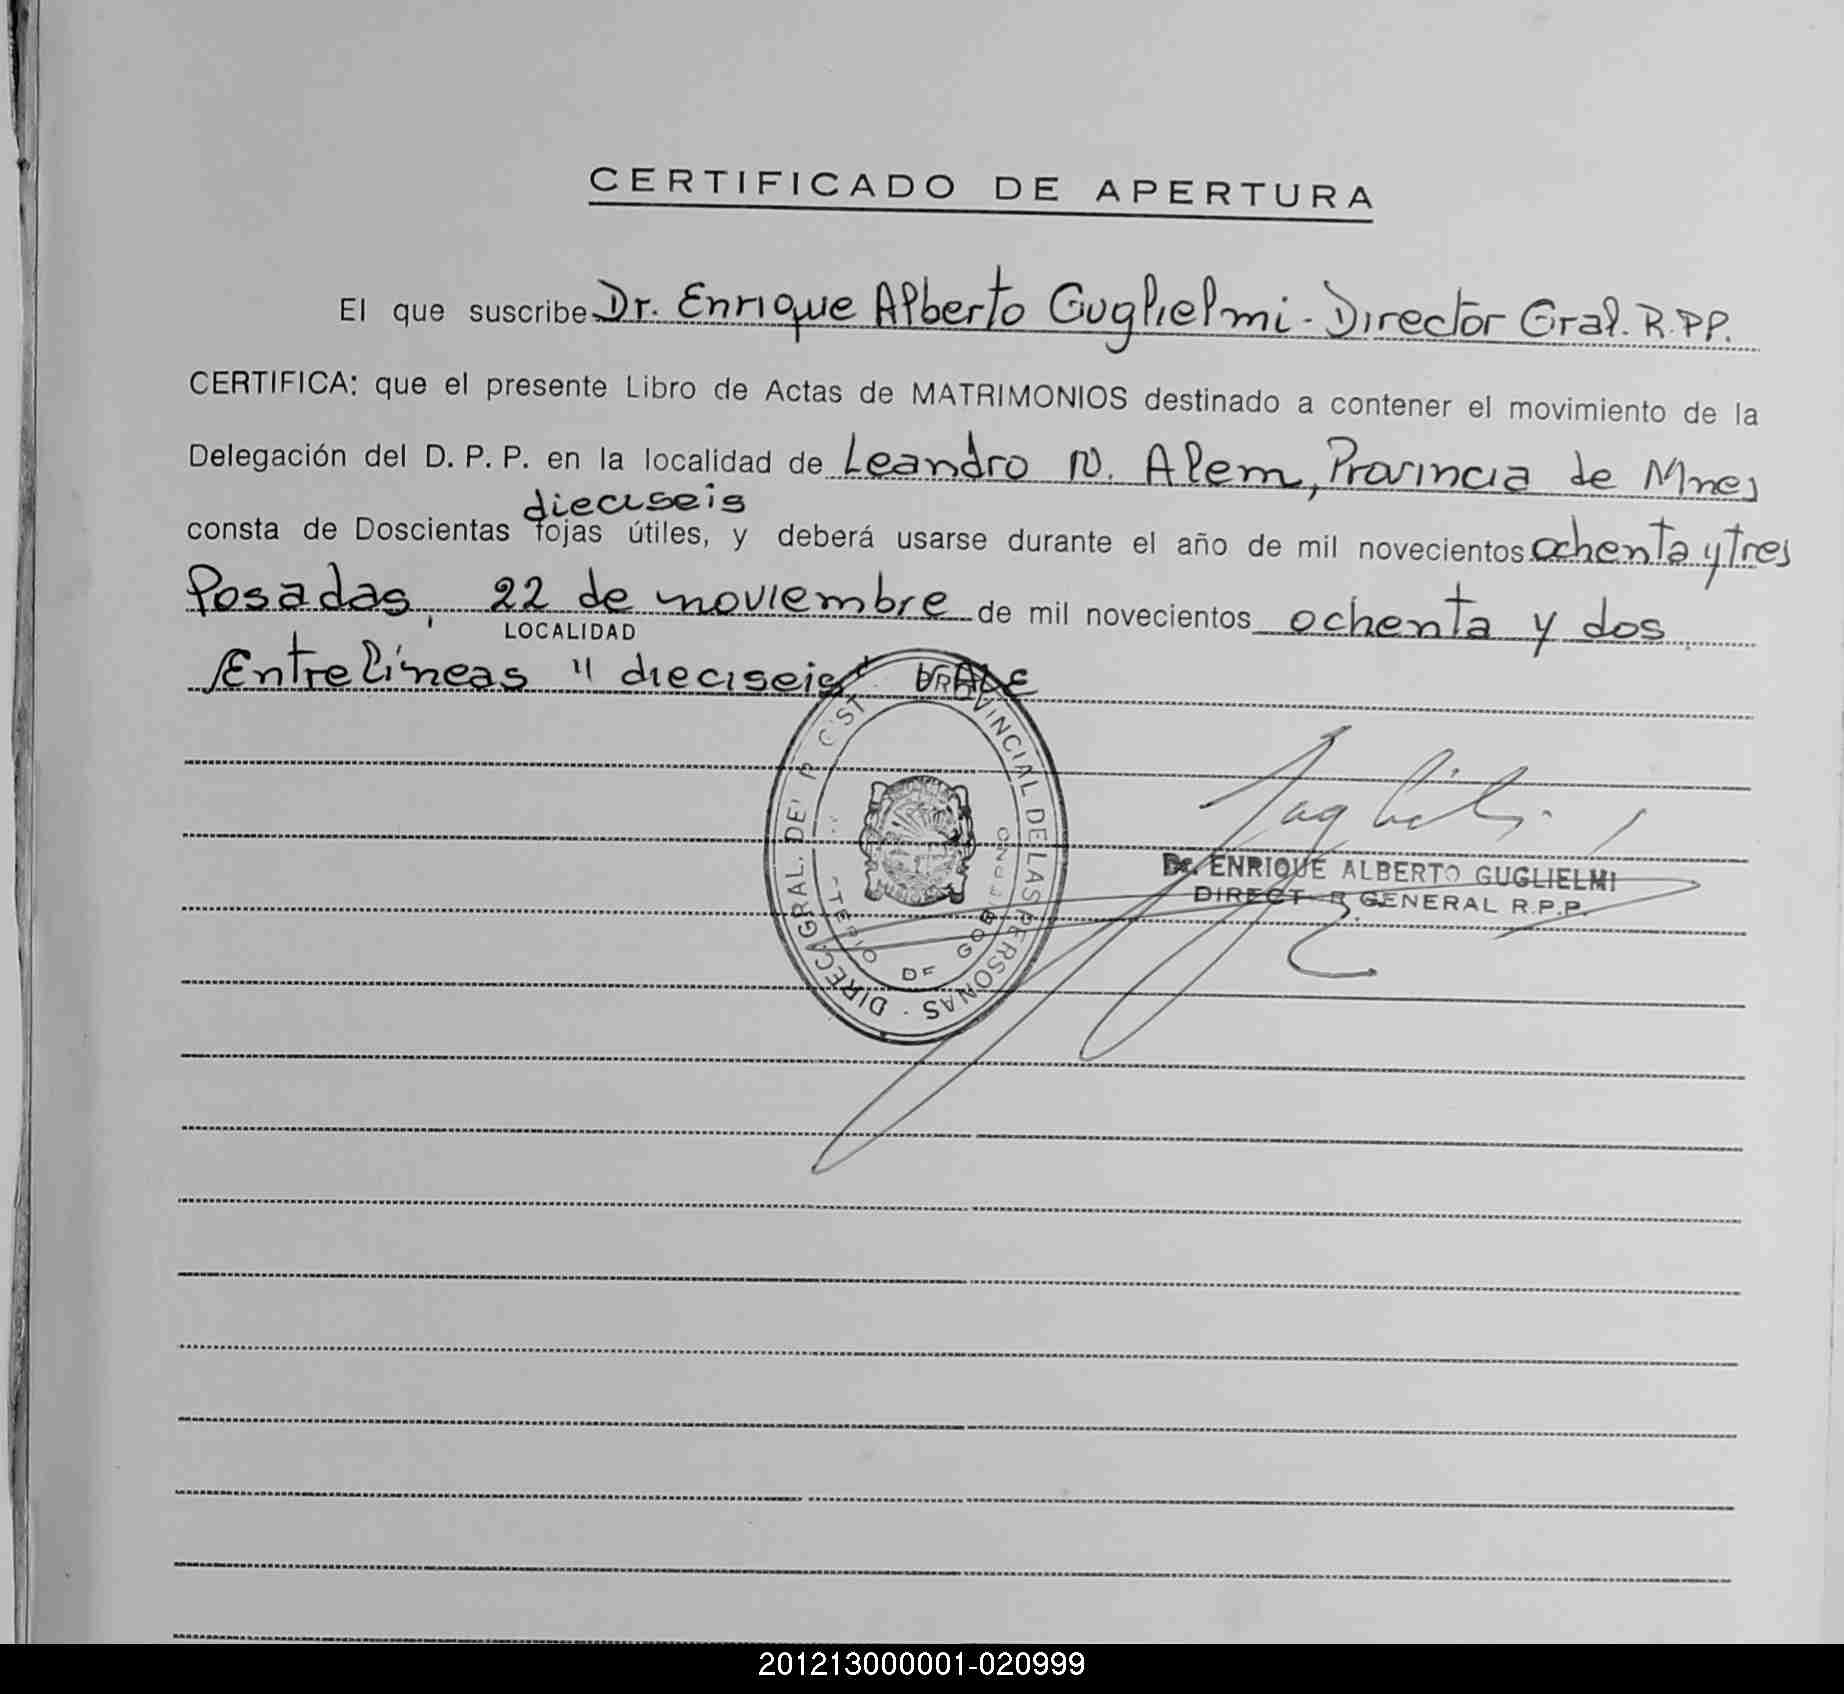 CERTIFICADO DE APERTURA
El que suscribe Dr. Enrique Alberto Guglielmi - Director Gral. R.PP.
CERTIFICA: que el presente Libro de Actas de MATRIMONIOS destinado a contener el movimiento de la
Delegación del D. P. P. en la localidad de Leandro N. Alem, Provincia de Mnes
dieciseis
consta de Doscientas fojas útiles, y deberá usarse durante el año de mil novecientos ochenta y tres
Posadas, 22 de noviembre de mil novecientos ochenta y dos
LOCALIDAD
Entre líneas "dieciseis" VALE
PROVINCIAL DE LAS PERSONAS
DIREC. GRAL. DE
DE GOBIERNO
Dr. ENRIQUE ALBERTO GUGLIELMI
DIRECTOR GENERAL R.P.P.
201213000001-020999